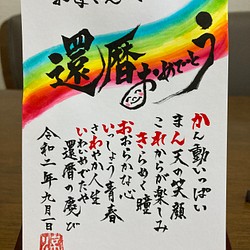 還暦おめでとう
かん動いっぱい
まん天の笑顔
これからが楽しみ
きらめく瞳
おおらかな心
いっしょう青春
さわやか人生
還暦の慶び
令和二年九月一日